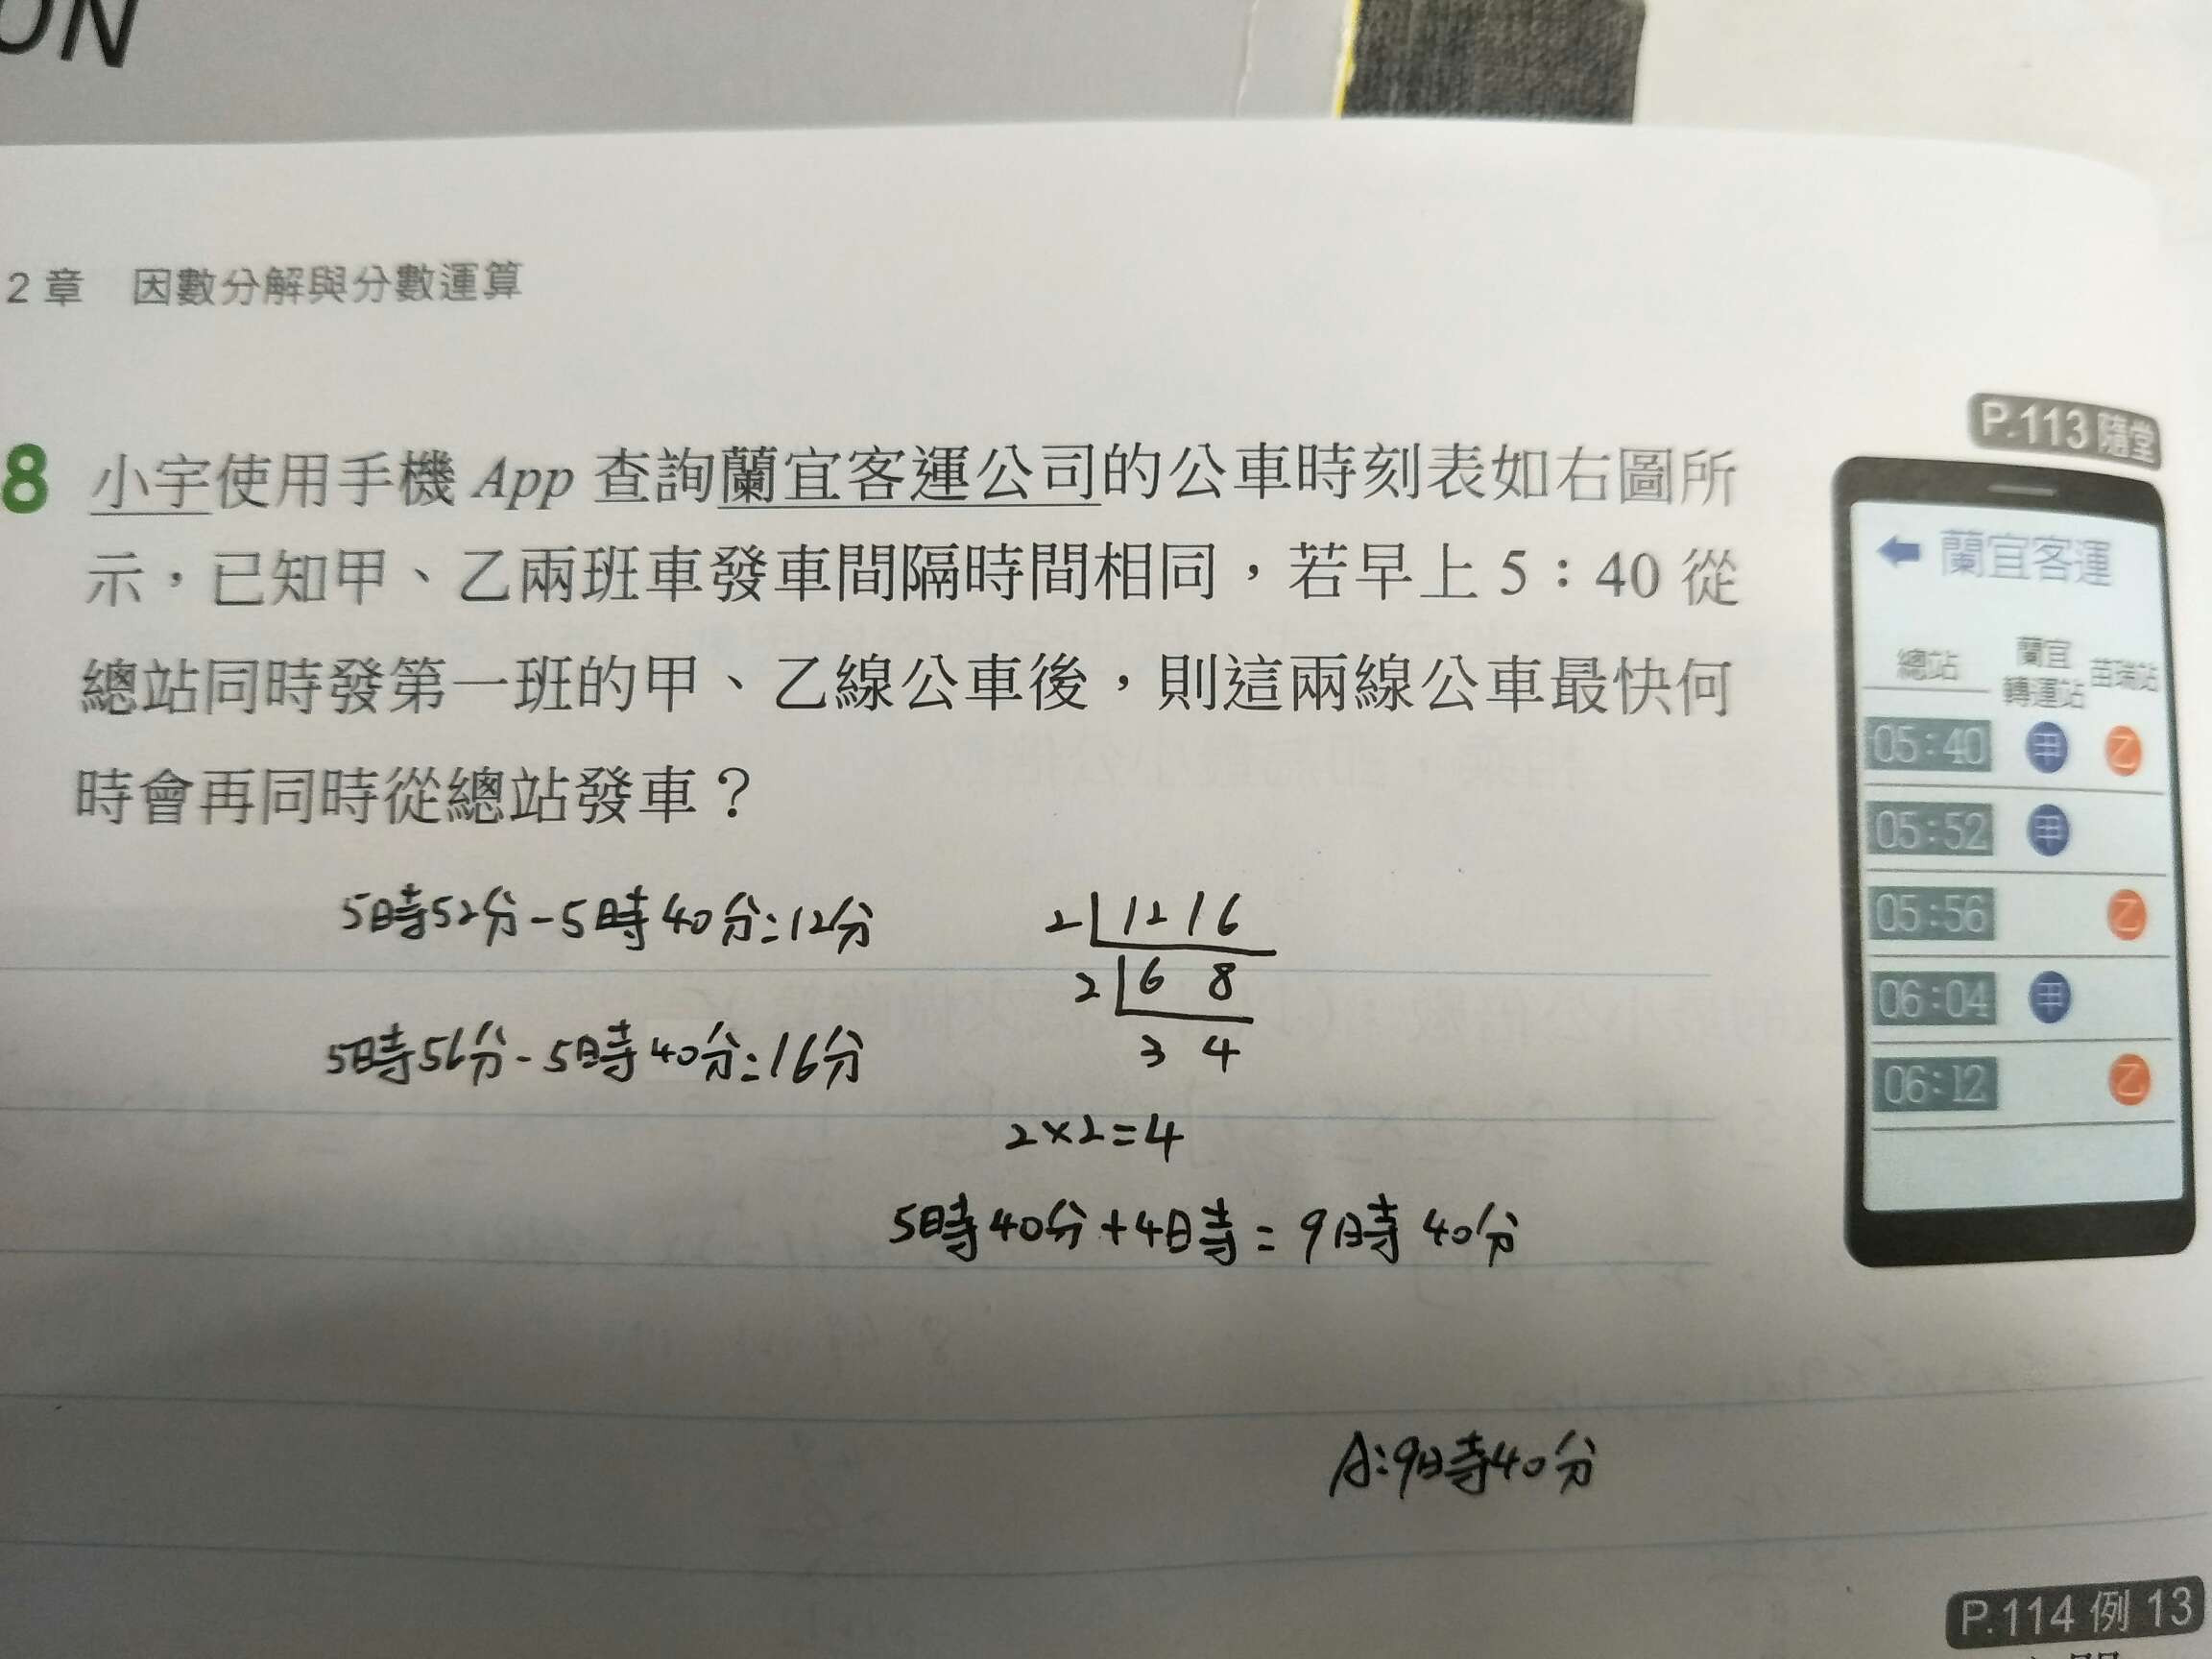 ON
2章 因數分解與分數運算
P.113 隨堂
8 小宇使用手機 App 查詢蘭宜客運公司的公車時刻表如右圖所
示，已知甲、乙兩班車發車間隔時間相同，若早上 5：40 從
總站同時發第一班的甲、乙線公車後，則這兩線公車最快何
時會再同時從總站發車？
蘭宜客運
總站 蘭宜轉運站 苗瑞站
05:40 甲 乙
05:52 甲
05:56 乙
06:04 甲
06:12 乙
5時52分-5時40分=12分
5時56分-5時40分=16分
2 12 16
2 6 8
3 4
2×2=4
5時40分+4時=9時40分
A:9時40分
P.114 例 13